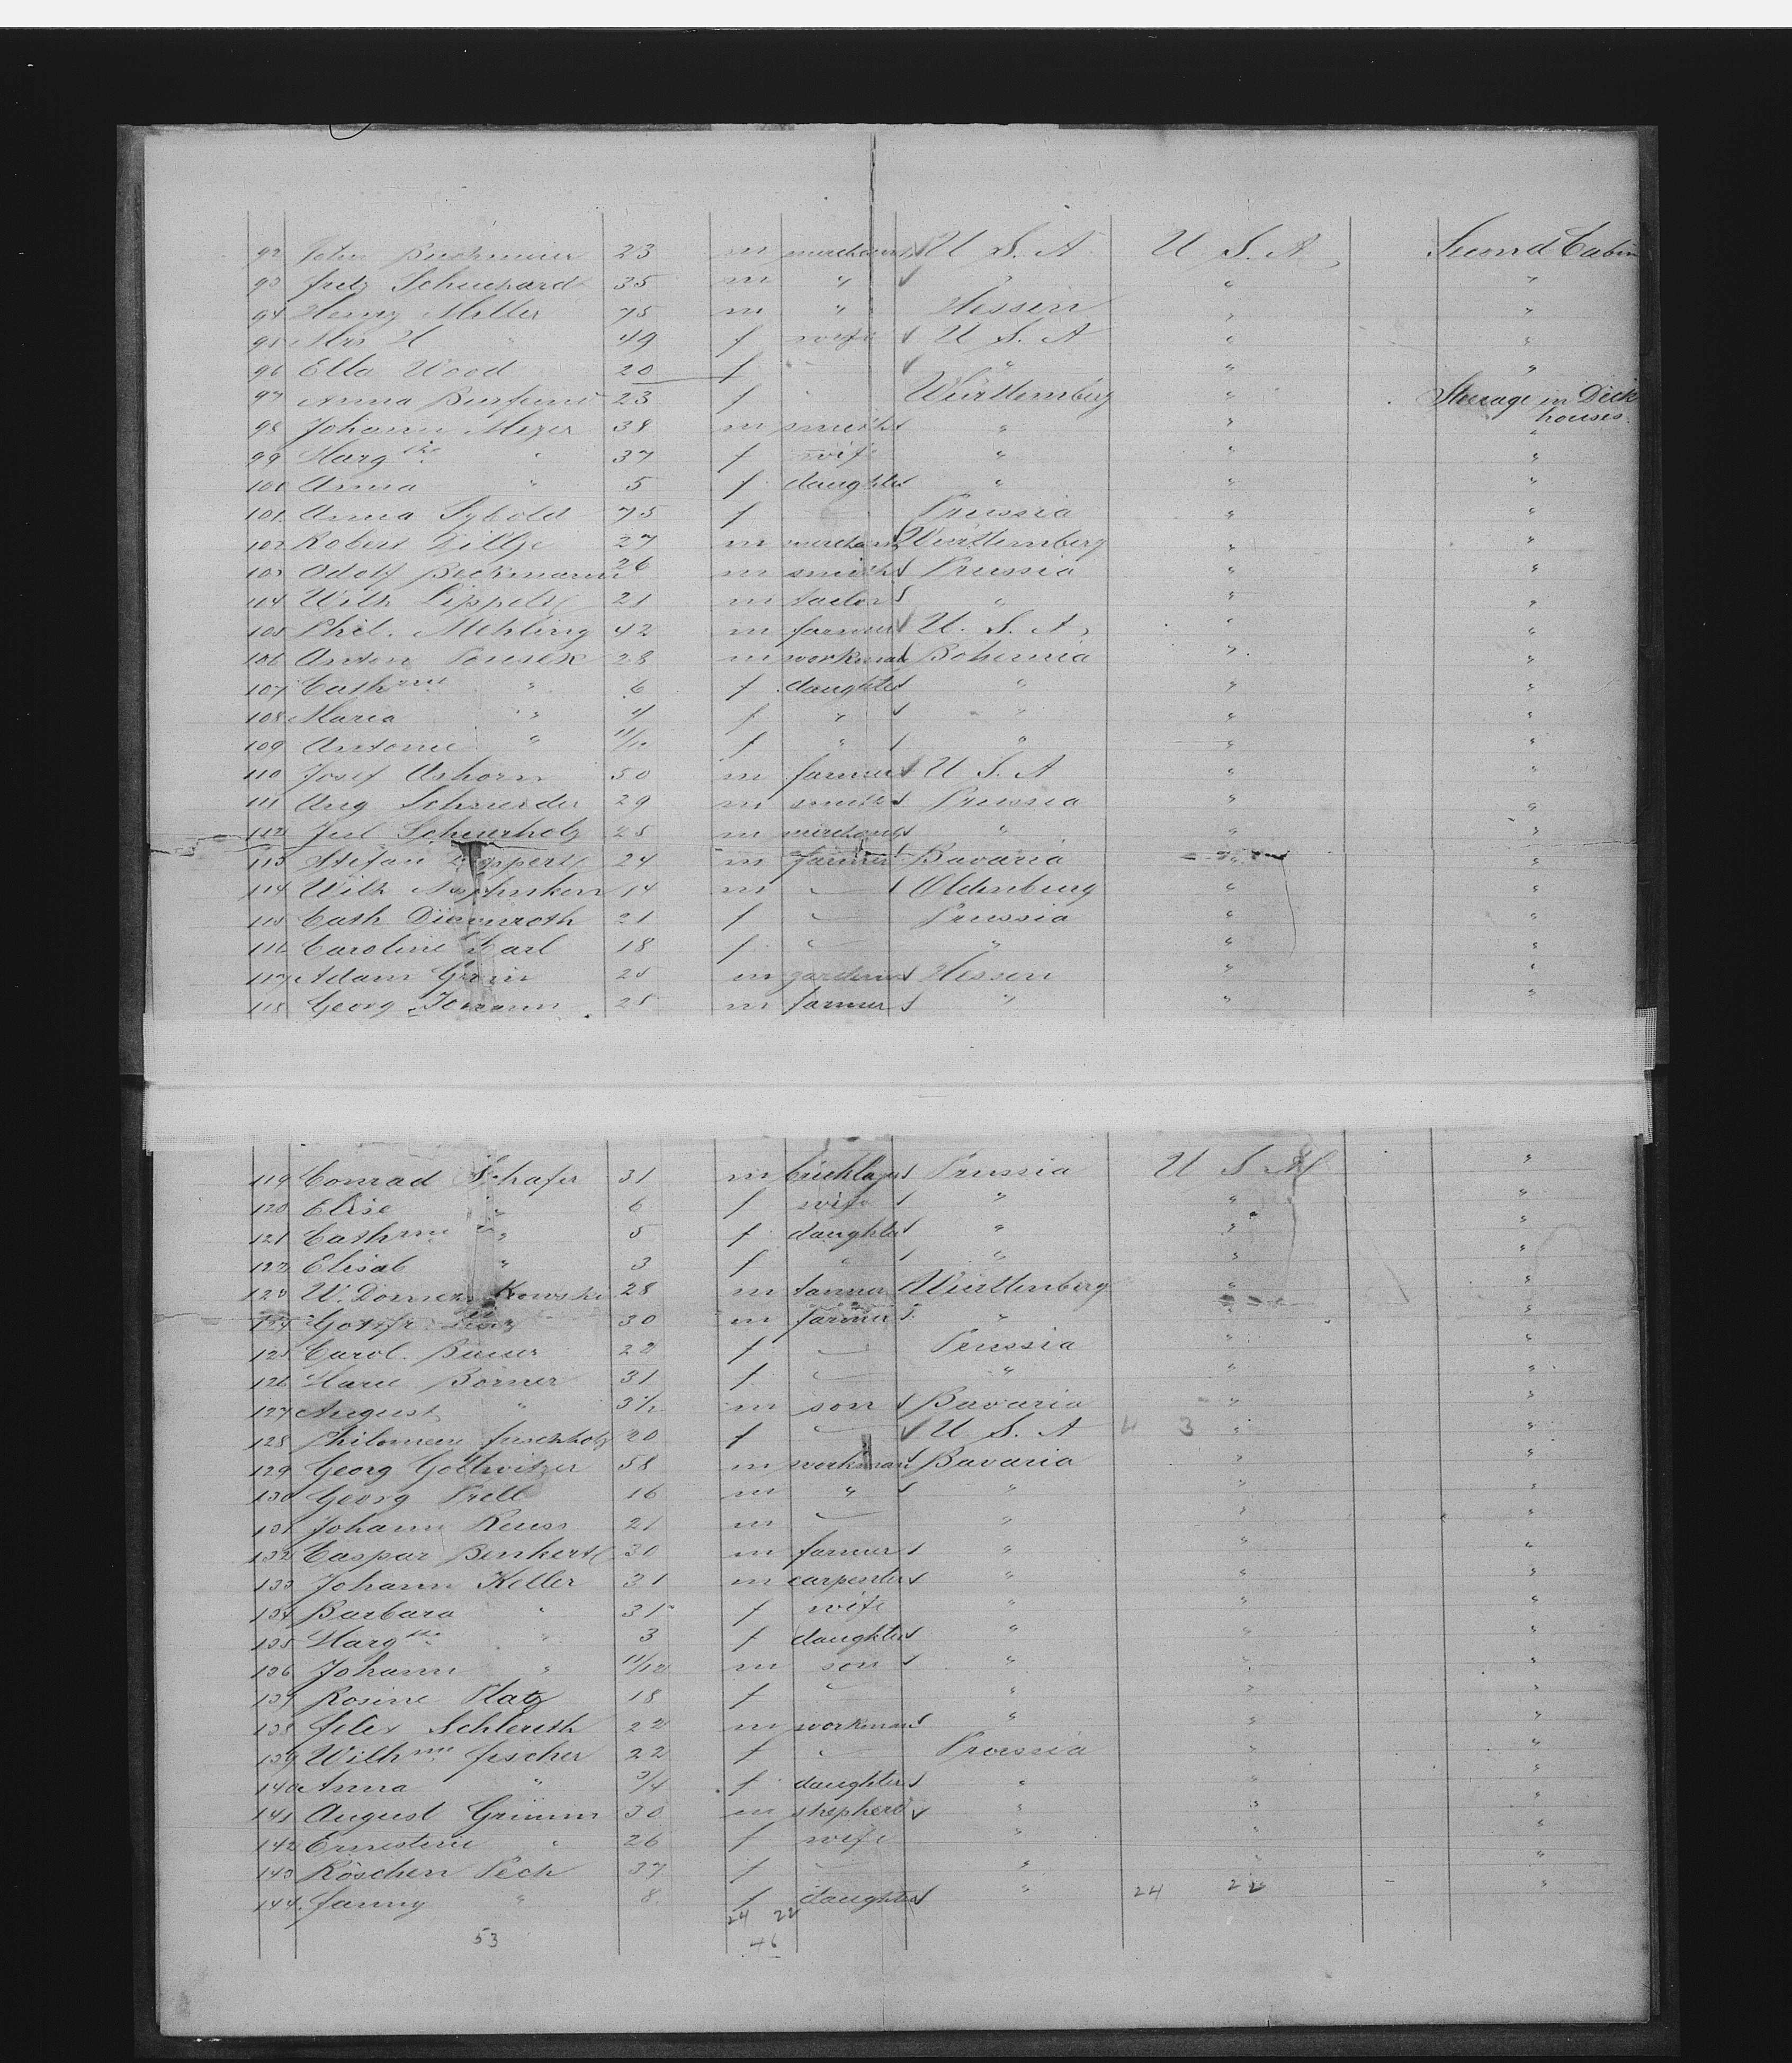 92 John Buchmeier 23 m merchant U. S. A U. S. A, Second Cabin
93 Fritz Schuchard 35 m " " " "
94 Henry Miller 75 m " Hessen " "
95 Mrs H " 49 f wife U. S. A " "
96 Ella Wood 20 f " " "
97 Anna 23 f Württemberg " Steerage in Deck houses.
98 Johann Mezer 38 m smith " " "
99 Margthe " 37 f wife " " "
100 Anna " 5 f daughter " " "
101 Anna Sybold 75 f Prussia " "
102 Robert Dillge 27 m merchant Württemberg " "
103 Adolf Beckmann 26 m smith Prussia " "
104 Wilh Lippelt 21 m tailor " " "
105 Phil. Mehling 42 m farmer U. S. A, " "
106 Anton 28 m workman Bohemia " "
107 Cathrine " 6 f daughter " " "
108 Maria " 4 f " " " "
109 Antonie " 11/12 f " " " "
110 Josef Ashorn 50 m farmer U. S. A " "
111 Aug Schneider 29 m smith Prussia " "
112 Jul Scheurholz 25 m merchant " " "
113 Stefan 24 m farmer Bavaria " "
114 Wilh 14 m — Oldenburg " "
115 Cath 21 f — Prussia " "
116 Caroline Carl 18 f — " " "
117 Adam 25 m gardener Hessen " "
118 Georg 25 m farmer " "
119 Conrad Schafer 31 m bricklayer Prussia U S A "
120 Elise " 6 f wife " " "
121 Cathrine " 5 f daughter " " "
122 Elisab " 3 f " " " "
123 W. 28 m tanner Württenberg " "
124 Gottfr. 30 m farmer " " "
125 Carol. Bauer 22 f — Prussia " "
126 Marie Börner 31 f — " " "
127 August " 3½ m son Bavaria " "
128 Philomene 20 f — U. S. A 4 3 " "
129 Georg Gollwitzer 58 m workman Bavaria " "
130 Georg Prell 16 m " " " "
131 Johann Reuss 21 m — " " "
132 Caspar Benkert 30 m farmer " " "
133 Johann Keller 31 m carpenter " " "
134 Barbara " 31 f wife " " "
135 Margthe " 3 f daughter " " "
136 Johann " 11/12 m son " " "
137 Rosine Platz 18 f — " " "
138 Felix Schlereth 22 m workman " " "
139 Wilhme Fischer 22 f — Prussia " "
140 Anna " 3/4 f daughter " " "
141 August Grimm 30 m shepherd " " "
142 Ernestine " 26 f wife " " "
143 Röschen Pech 37 f — " " "
144. Fanny " 8 f daughter " 24 22 — "
24 22
53 46